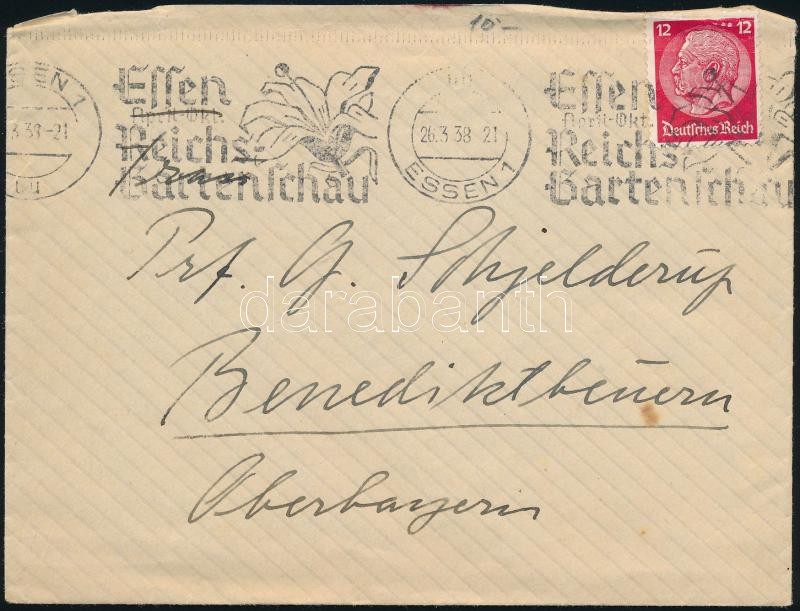 10-
12 12
Deutsches Reich
ESSEN 1
3.38-21
Essen
April-Okt.
Reichs-
Gartenschau
26.3.38 21
ESSEN 1
Essen
April-Okt.
Reichs
Gartenschau
Frau
Prf. G. Schjelderup
darabanth
Benediktbeuern
Oberbayern